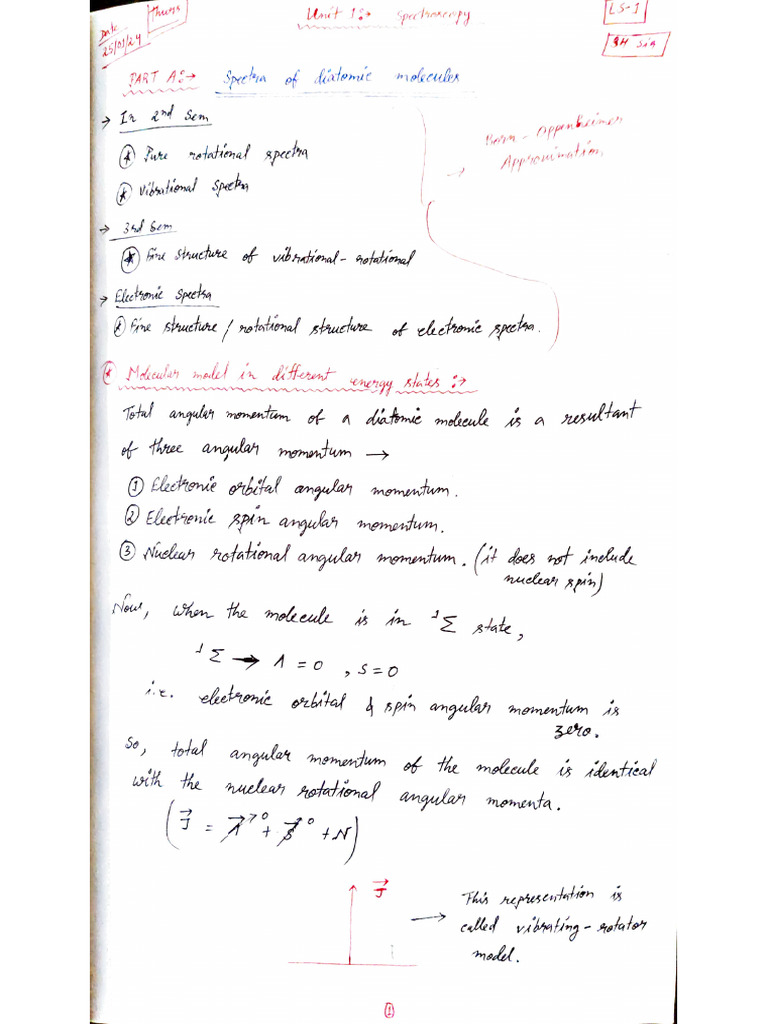 Date
25/01/24
Thurs
Unit 1:→ Spectroscopy
LS-1
SH Sir
PART A:→ Spectra of diatomic molecules
→ In 2nd Sem
* Pure rotational spectra
* Vibrational Spectra
Born-Appenheimer
Approximation
→ 3rd Sem
* Fine structure of vibrational-rotational
→ Electronic Spectra
* Fine structure / rotational structure of electronic spectra.
* Molecular model in different energy states:→
Total angular momentum of a diatomic molecule is a resultant
of three angular momentum →
① Electronic orbital angular momentum.
② Electronic spin angular momentum.
③ Nuclear rotational angular momentum. (it does not include
nuclear spin)
Now, when the molecule is in ¹Σ state,
¹Σ → Λ = 0 , S = 0
i.e. electronic orbital & spin angular momentum is
zero.
So, total angular momentum of the molecule is identical
with the nuclear rotational angular momenta.
(J⃗ = Λ⃗↗⁰ + S⃗↗⁰ + N)
J⃗
→ This representation is
called vibrating-rotator
model.
1